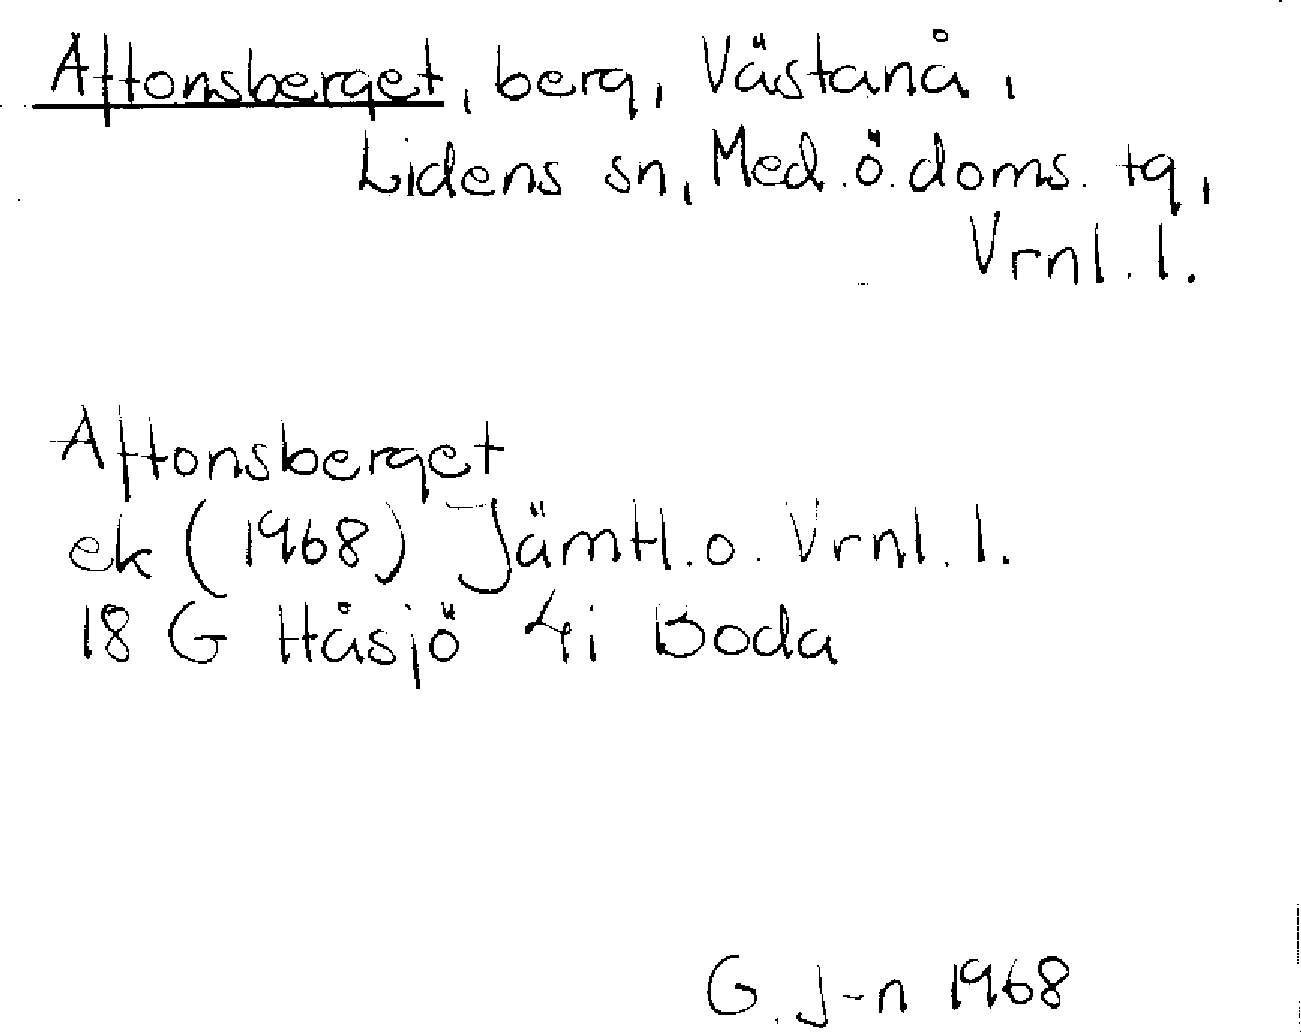 Aftonsberget, berg, Västanå,
Lidens sn, Med. ö. doms. tg,
Vrnl. l.
Aftonsberget
ek (1968) Jämtl. o. Vrnl. l.
18 G Håsjö 4i Boda
G. J-n 1968